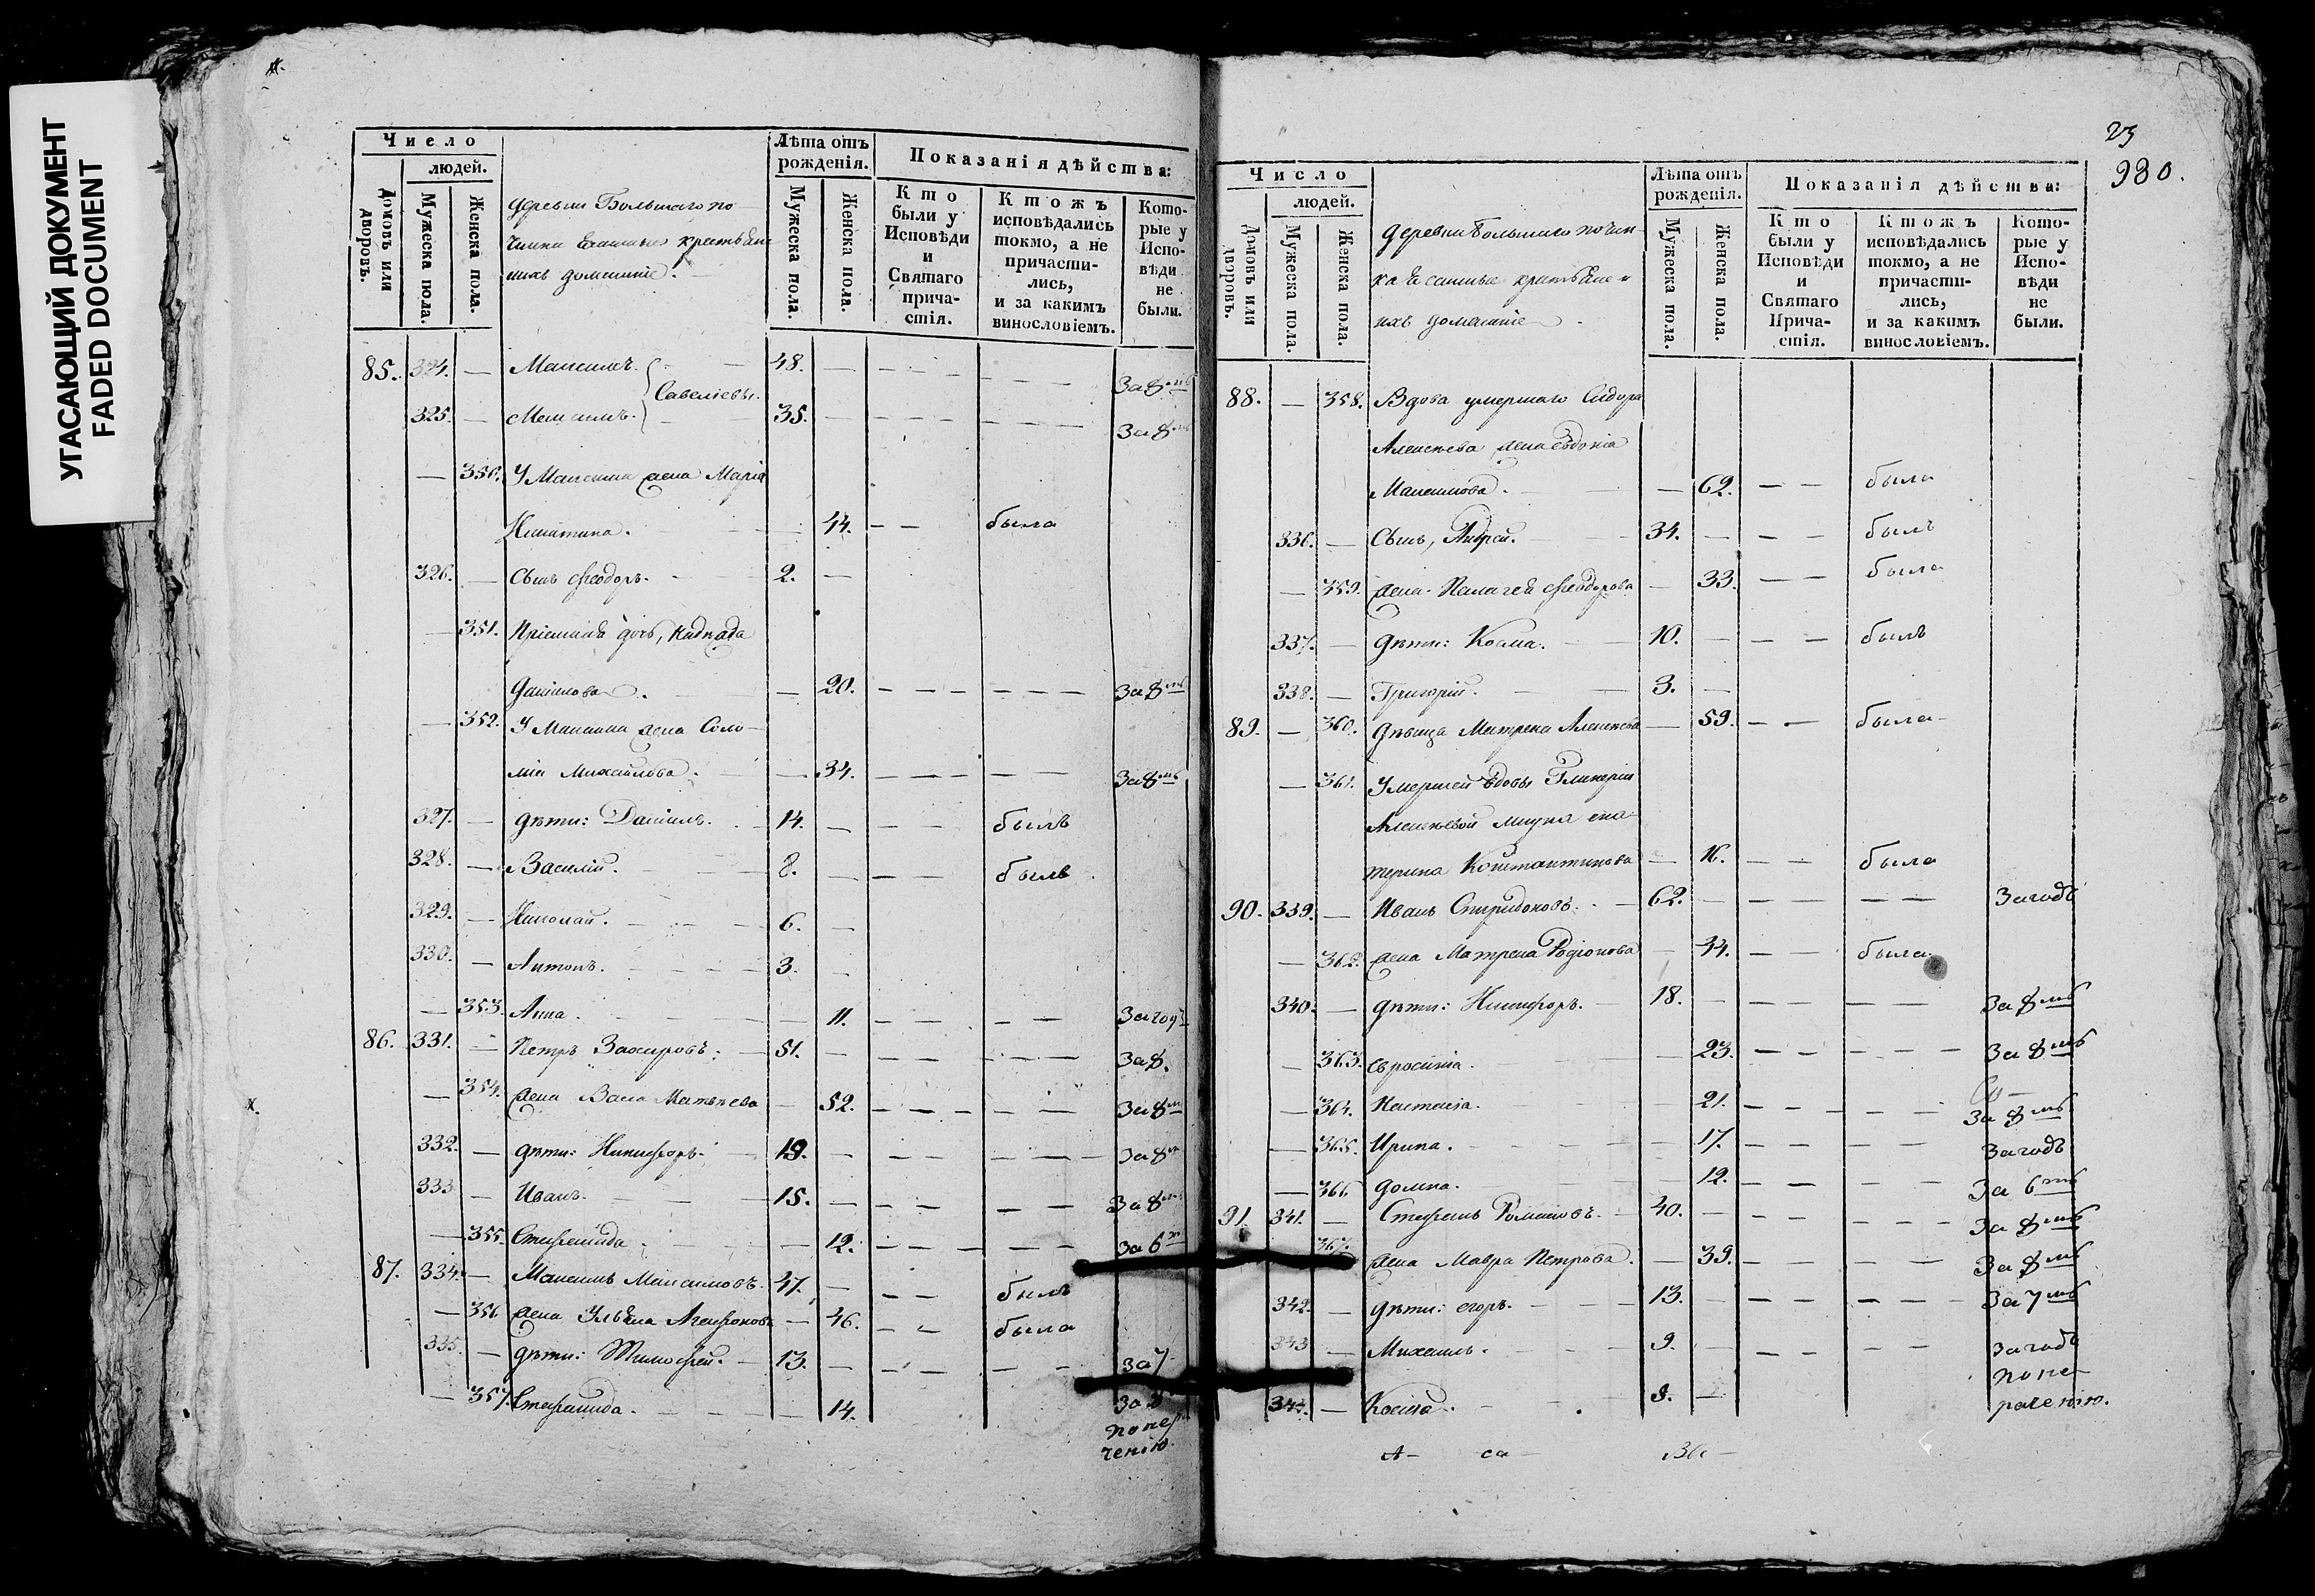 УГАСАЮЩИЙ ДОКУМЕНТ
FADED DOCUMENT
Число
людей.
Домовъ или дворовъ.
Мужеска пола.
Женска пола.
деревни Большаго по-
чинка
ихъ домашніе.
Лѣта отъ рожденія.
Мужеска пола.
Женска пола.
Показанія дѣйства:
Кто были у Исповѣди и Святаго причастія.
Ктожъ исповѣдались токмо, а не причастились, и за какимъ винословіемъ.
Которые у Исповѣди не были.
85. 324. — Максимъ. 48. — За 8 мъ
Савеліевы.
325. — 35. — За 8 мъ
— 350. У Максима жена Марія
Никитина. 44. была
326. — Сынъ Феодоръ. 2. —
— 351. Пріемная дочь,
Данилова. — 20. За 8 мъ
— 352. У жена Соло-
мія Михайлова. — 34. За 8 мъ
327. — дѣти: Даніилъ. 14. — былъ
328. — Василій. 8. — былъ
329. — Николай. 6. —
330. — Антонъ. 3. —
— 353. Анна. — 11. За годъ
86. 331. — Петръ Захаровъ. 51. — За 8.
— 354. жена Васса Матвѣева — 52. За 8 м
332. — дѣти: Никифоръ. 19. — За 8 м
333 — Иванъ. 15. — За 8 м
— 355. Стефанида — 12. За 6 м
87. 334. — Максимъ Максимовъ. 47. — былъ
— 356 жена Ульяна Агафонова — 46. была
335. — дѣти: Тимофей. 13. — За 7
— 357. Стефанида. — 14. За 8
по нер
ченію.
23
980.
Число
людей.
Домовъ или дворовъ.
Мужеска пола.
Женска пола.
деревни Большаго почин-
ка
ихъ домашніе
Лѣта отъ рожденія.
Мужеска пола.
Женска пола.
Показанія дѣйства:
Кто были у Исповѣди и Святаго Причастія.
Ктожъ исповѣдались токмо, а не причастились, и за какимъ винословіемъ.
Которые у Исповѣди не были.
88. — 358. Вдова умершаго Сидора
Алексѣева жена Евдокія
Максимова. — 62. была
336. — Сынъ, Андрей. 34. — былъ
— 359. жена Пелагея Феодорова — 33. была
337. — дѣти: Косма. 10. — былъ
338. — Григорій. 3. —
89. — 360. дѣвица Матрена Алексѣева — 59. была
— 361. Умершей вдовы Гликеріи
Алексѣевой внука Ека-
терина Константинова — 16. была
90. 339. — Иванъ Спиридоновъ. 62. — За годъ
— 362. жена Матрена Родіонова — 44. была
340. — дѣти: Никифоръ. 18. — За 8 мъ
— 363. Евросинія. — 23. За 8 мъ
— 364. Настасія. — 21. За 8 мъ
— 365. Ирина. — 17. За годъ
— 366 Домна. — 12. За 6 мъ
91. 341. — Стефанъ Романовъ. 40. — За 8 мъ
367. жена Мавра Петрова. — 39. За 8 мъ
342. — дѣти: Егоръ. 13. — За 7 мъ
343 — Михаилъ. 9. — За годъ
344. — Косма. 8. — по не-
раченію.